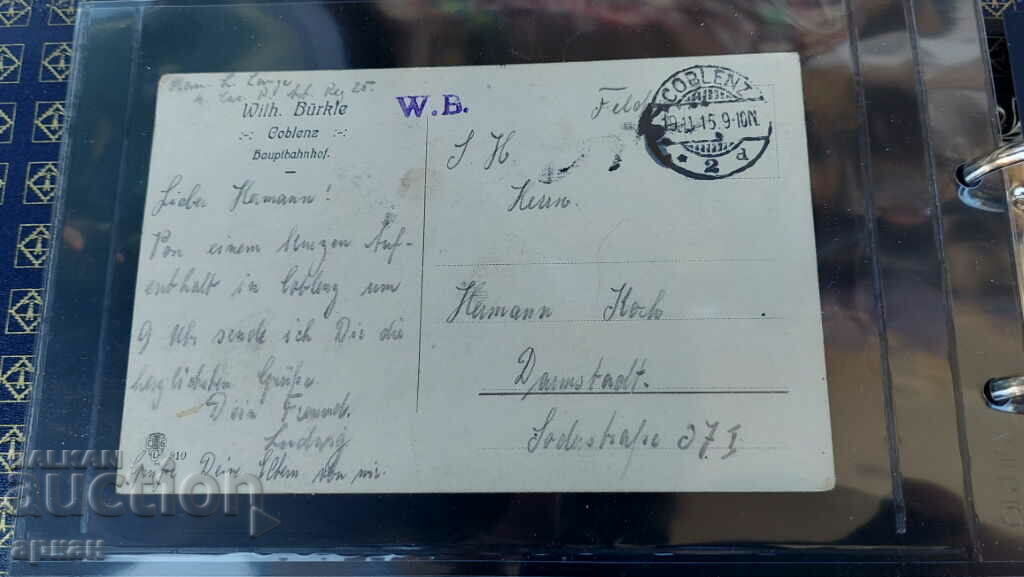 L. Lange
Reg 25.
Wilh. Bürkle
Coblenz
Hauptbahnhof.
W.B.
Feld
COBLENZ
11.15.9-10N.
* 2 d
S. H.
Herrn
Lieber Hermann!
Von einem kurzen Auf-
enthalt in Coblenz um
9 Uhr sende ich Dir die
herzlichsten Grüße.
Dein Freund.
Ludwig
Grüße Deine Eltern von mir.
Hermann Koch
Darmstadt.
Soderstraße 37 I
10
BALKAN
auction
аркан